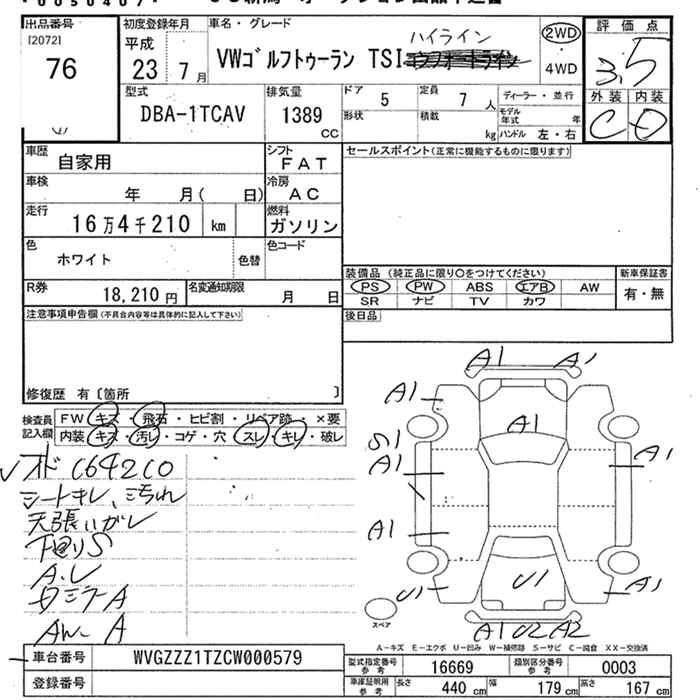 出品番号
[2072]
76
初度登録年月
平成
23 7 月
車名・グレード
VWゴルフトゥーラン TSI
ハイライン
2WD
・
4WD
評価点
3.5
外装 内装
C D
型式
DBA-1TCAV
排気量
1389
CC
ドア
5
定員
7 人
形状
積載
kg
ディーラー・並行
モデル年式 年
ハンドル 左・右
車歴
自家用
シフト
FAT
車検
年 月( 日)
冷房
AC
走行
16万4千210 km
燃料
ガソリン
色
ホワイト
色替
色コード
R券
18,210 円
名変通知期限
月 日
セールスポイント(正常に機能するものに限ります)
装備品 (純正品に限り○をつけてください)
新車保証書
PS PW ABS エアB AW
有・無
SR ナビ TV カワ
後日品
注意事項申告欄(不具合内容等は具体的に記入して下さい)
修復歴 有〔箇所 〕
検査員記入欄
FW キズ・飛石・ヒビ割・リペア跡・×要
内装 キズ・汚れ・コゲ・穴・スレ・キレ・破レ
シートキレ、汚れ
下回りS
AW A
A1 A1
A1
A1
S1
A1
A1
A1
U1
U1
A1
A1 U2 A2
スペア
A－キズ E－エクボ U－凹み W－補修跡 S－サビ C－腐食 XX－交換済
車台番号
WVGZZZ1TZCW000579
登録番号
型式指定番号参考
16669
類別区分番号参考
0003
車庫証明用参考
長さ 440 cm
幅 179 cm
高さ 167 cm